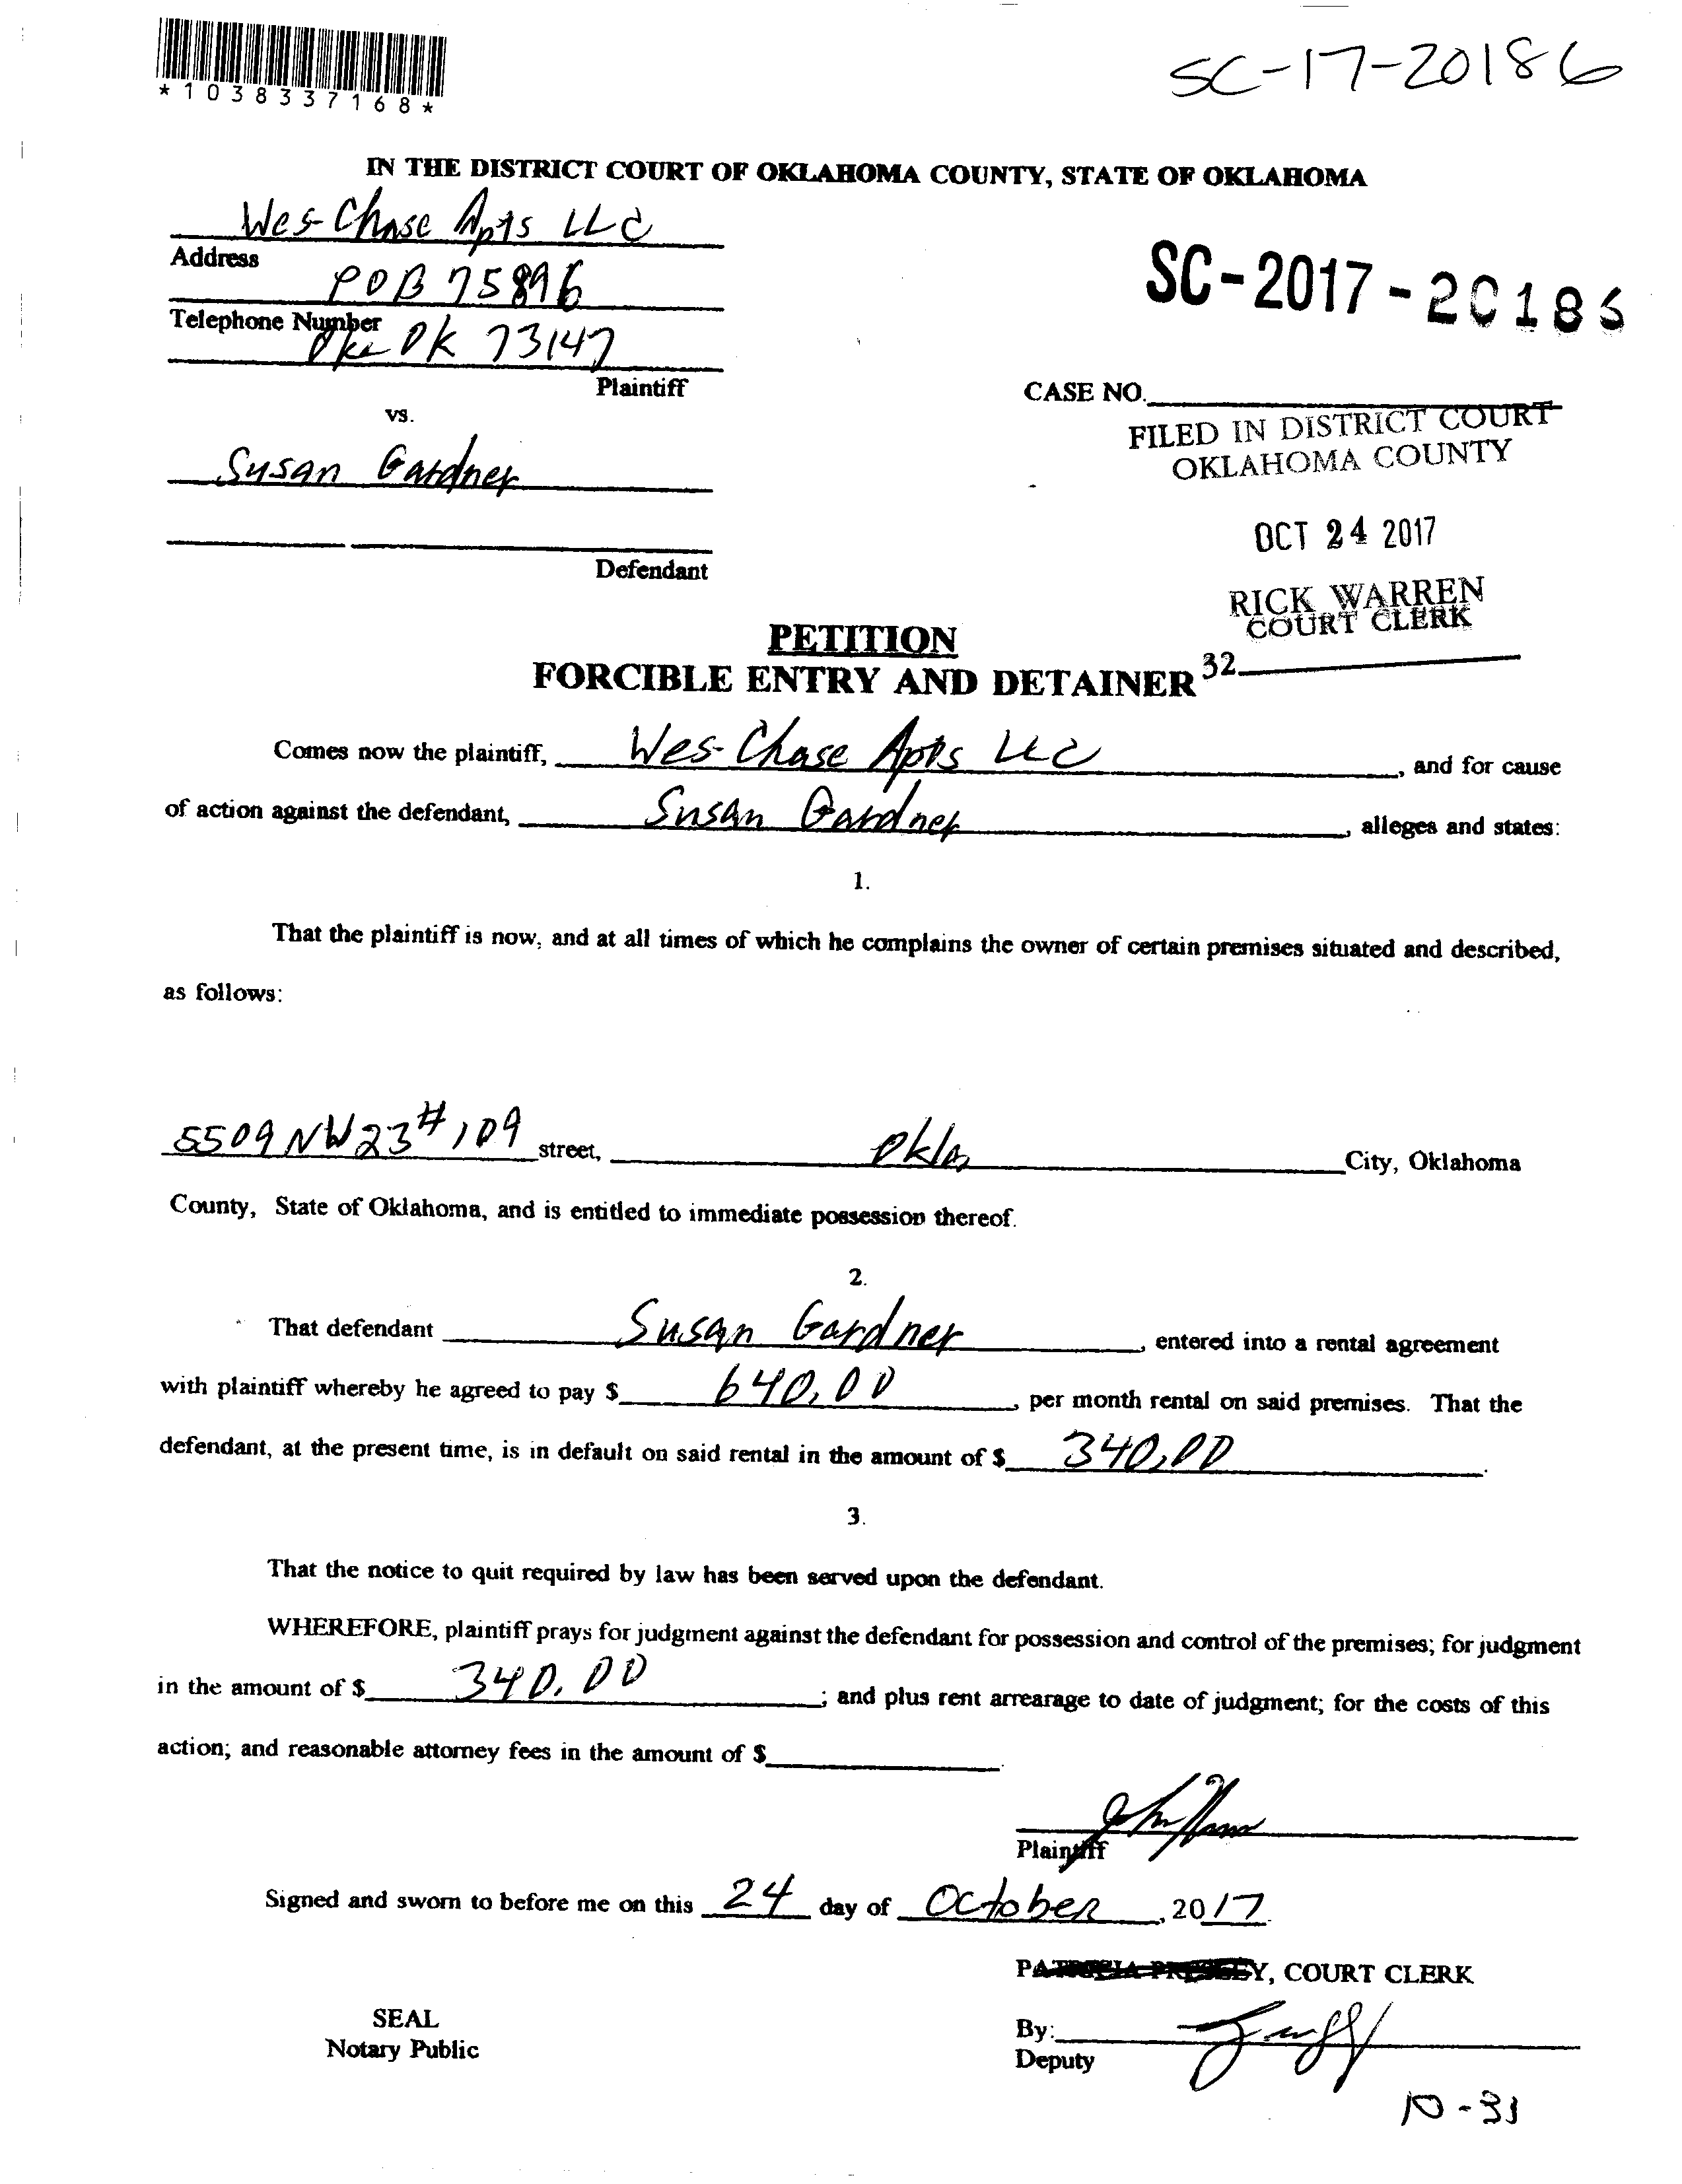 *1038337168*
SC-17-20186
IN THE DISTRICT COURT OF OKLAHOMA COUNTY, STATE OF OKLAHOMA
Wes-Chase Apts LLC
Address
POB 75896
Telephone Number
OK 73147
Plaintiff
SC-2017-20186
CASE NO.
vs.
FILED IN DISTRICT COURT
OKLAHOMA COUNTY
Susan Gardner
OCT 24 2017
Defendant
RICK WARREN
COURT CLERK
32
PETITION
FORCIBLE ENTRY AND DETAINER
Comes now the plaintiff, Wes-Chase Apts LLC, and for cause
of action against the defendant, Susan Gardner, alleges and states:
1.
That the plaintiff is now, and at all times of which he complains the owner of certain premises situated and described,
as follows:
5509 NW 23 #109 street, Okla City, Oklahoma
County, State of Oklahoma, and is entitled to immediate possession thereof.
2.
That defendant Susan Gardner, entered into a rental agreement
with plaintiff whereby he agreed to pay $ 640.00, per month rental on said premises. That the
defendant, at the present time, is in default on said rental in the amount of $ 340.00.
3.
That the notice to quit required by law has been served upon the defendant.
WHEREFORE, plaintiff prays for judgment against the defendant for possession and control of the premises; for judgment
in the amount of $ 340.00; and plus rent arrearage to date of judgment; for the costs of this
action; and reasonable attorney fees in the amount of $
Plaintiff
Signed and sworn to before me on this 24 day of October, 2017.
COURT CLERK
SEAL
Notary Public
By:
Deputy
10-31